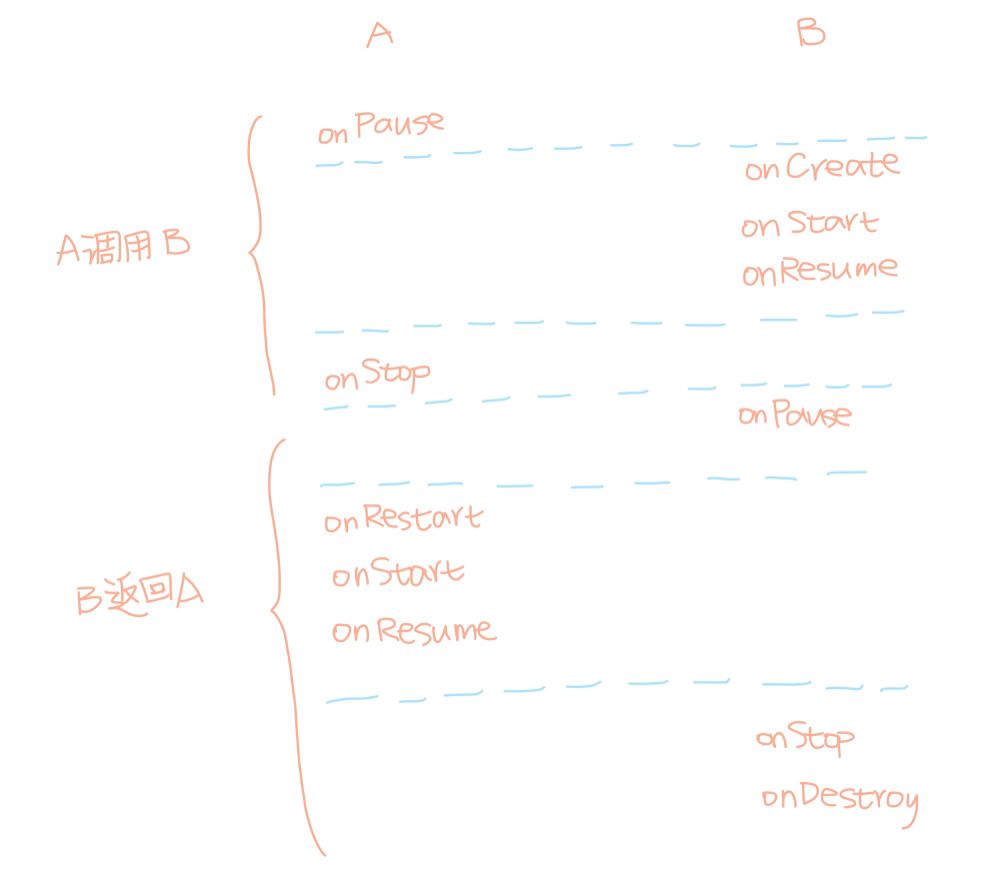 A B
onPause
onCreate
A调用B
onStart
onResume
onStop
onPause
onRestart
onStart
B返回A
onResume
onStop
onDestroy